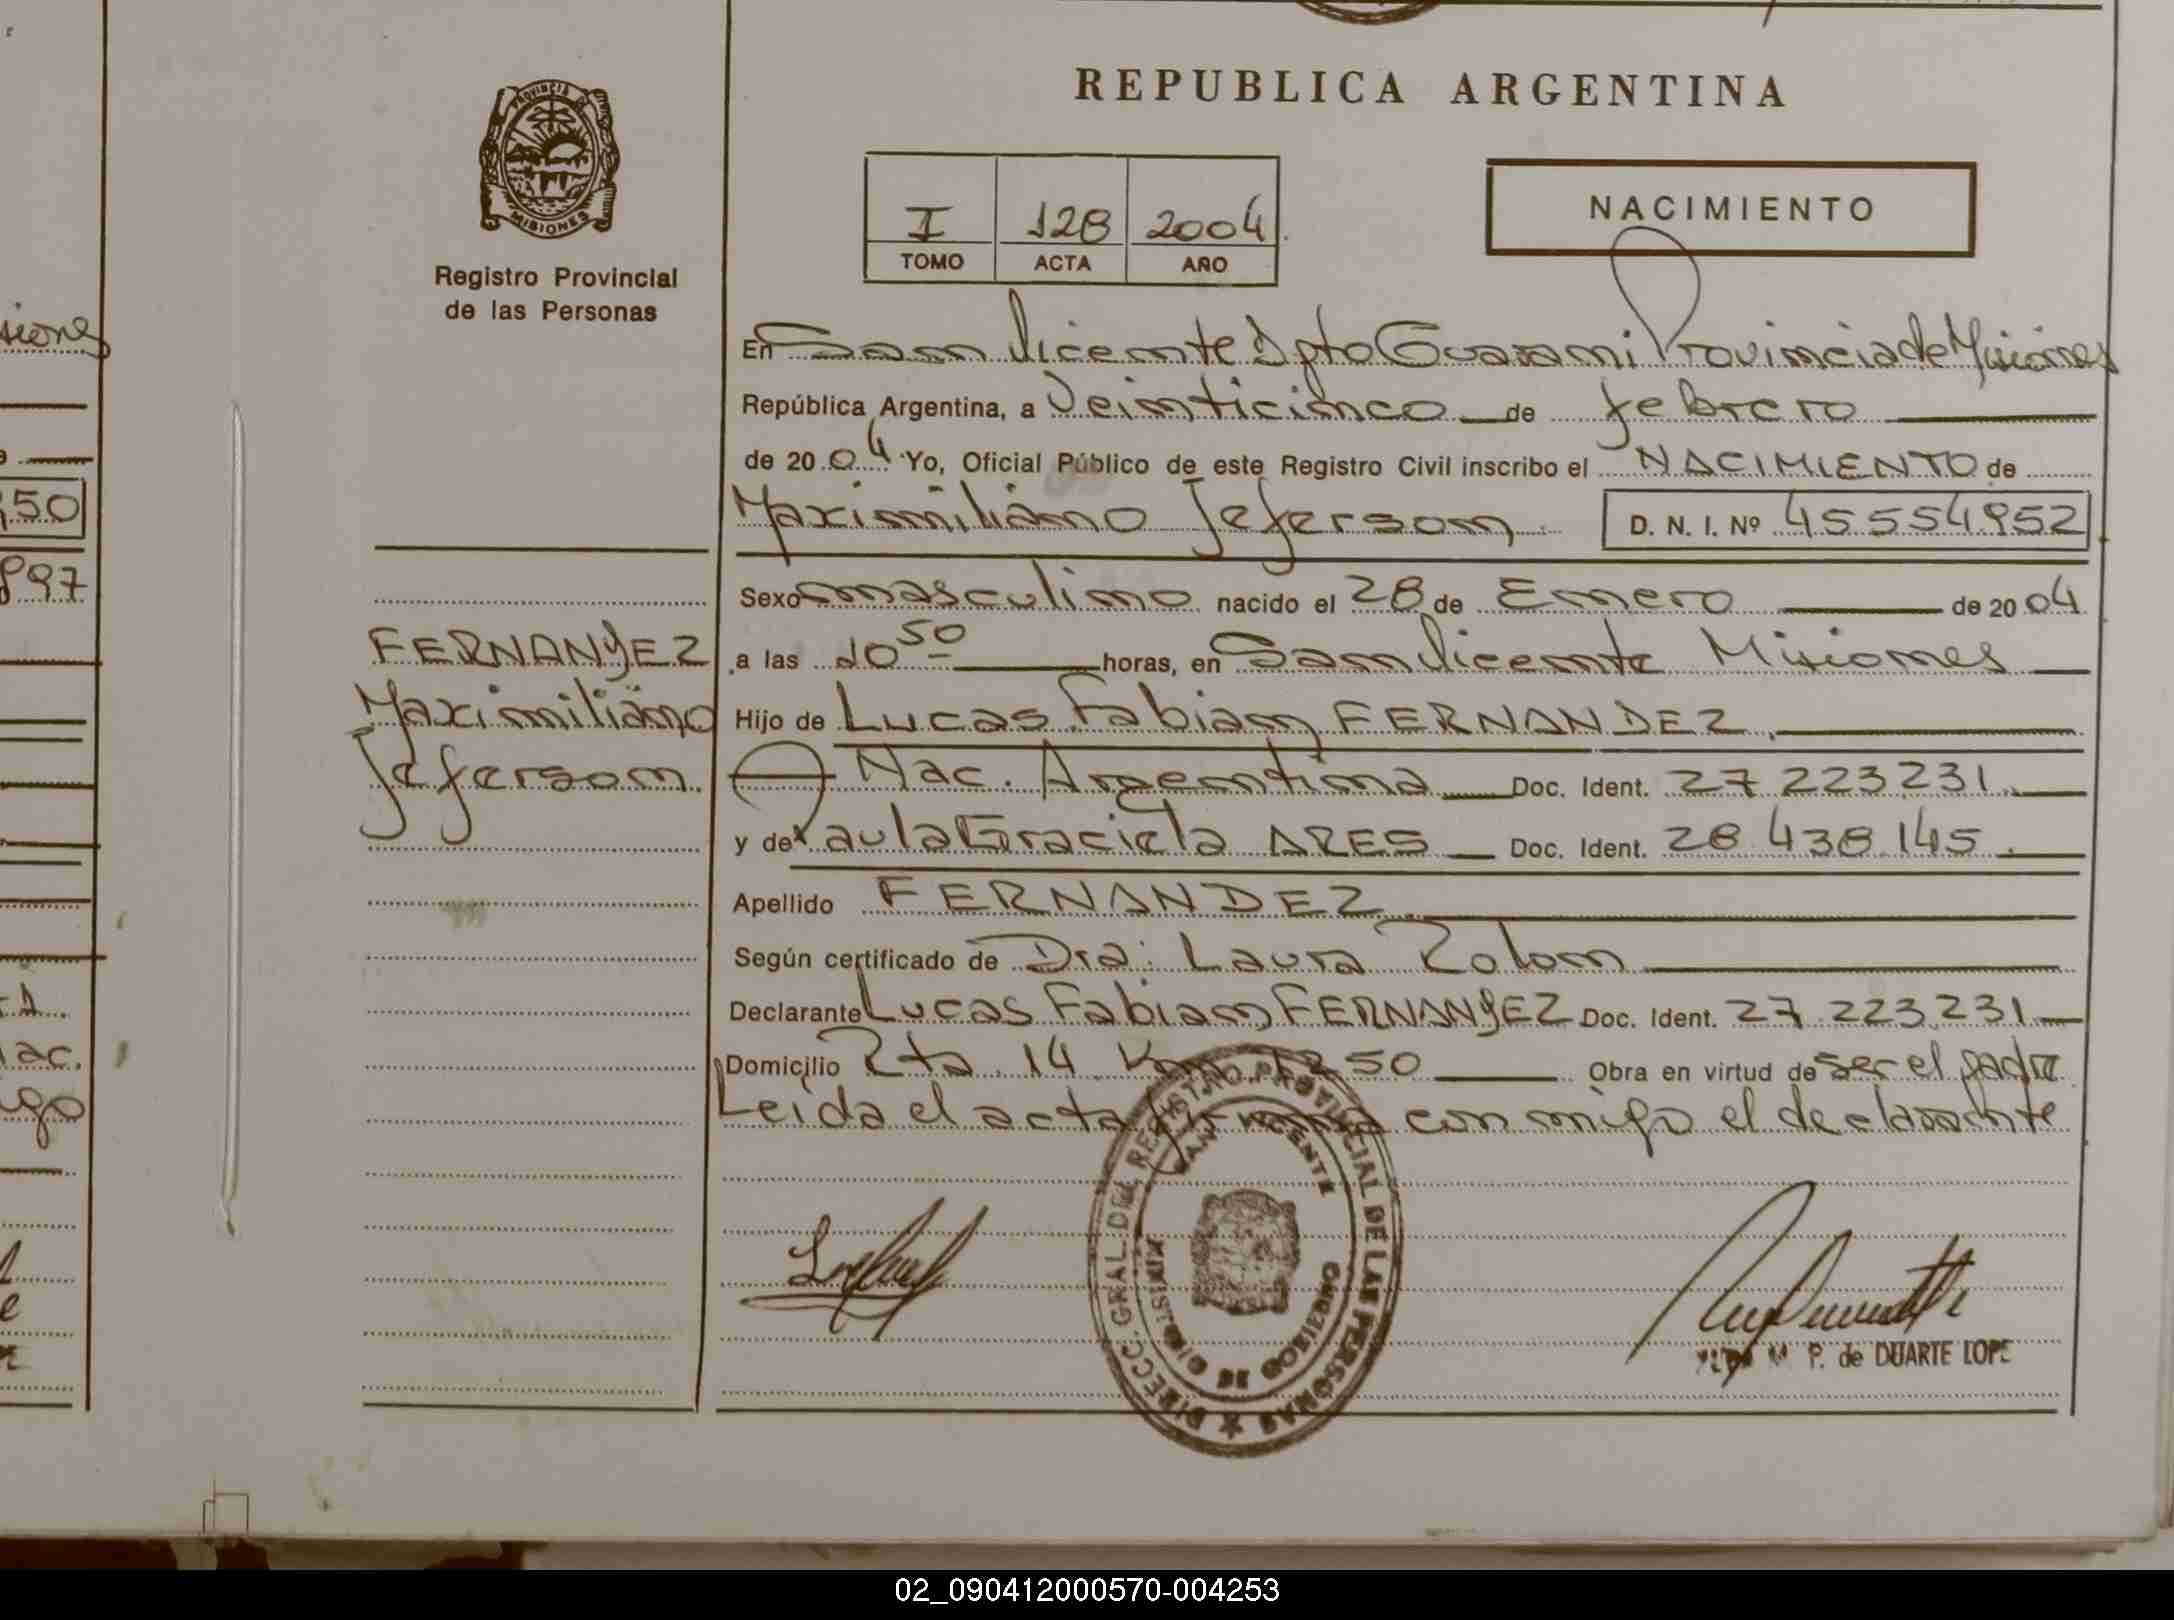 REPUBLICA ARGENTINA
PROVINCIA DE
MISIONES
Registro Provincial
de las Personas
I 128 2004
TOMO ACTA AÑO
NACIMIENTO
En San Vicente Dpto Guarani Provincia de Misiones
República Argentina, a Veinticinco de febrero
de 2004 Yo, Oficial Público de este Registro Civil inscribo el NACIMIENTO de
Maximiliano Jeferson D. N. I. Nº 45554952
Sexo masculino nacido el 28 de Enero de 2004
a las 10 50 horas, en San Vicente Misiones
Hijo de Lucas Fabian FERNANDEZ
Nac. Argentina Doc. Ident. 27 223 231
y de Paula Graciela ARES Doc. Ident. 28 438 145
Apellido FERNANDEZ
Según certificado de Dra: Laura Rolon
Declarante Lucas Fabian FERNANDEZ Doc. Ident. 27 223 231
Domicilio Rta 14 Km 1250 Obra en virtud de ser el padre
Leida el acta firma conmigo el declarante
FERNANDEZ
Maximiliano
Jeferson
DIRECC. GRAL. DEL REGISTRO PROVINCIAL DE LAS PERSONAS
SAN VICENTE
M P. de DUARTE LOPE
siones
50
897
ac.
igo
02_090412000570-004253